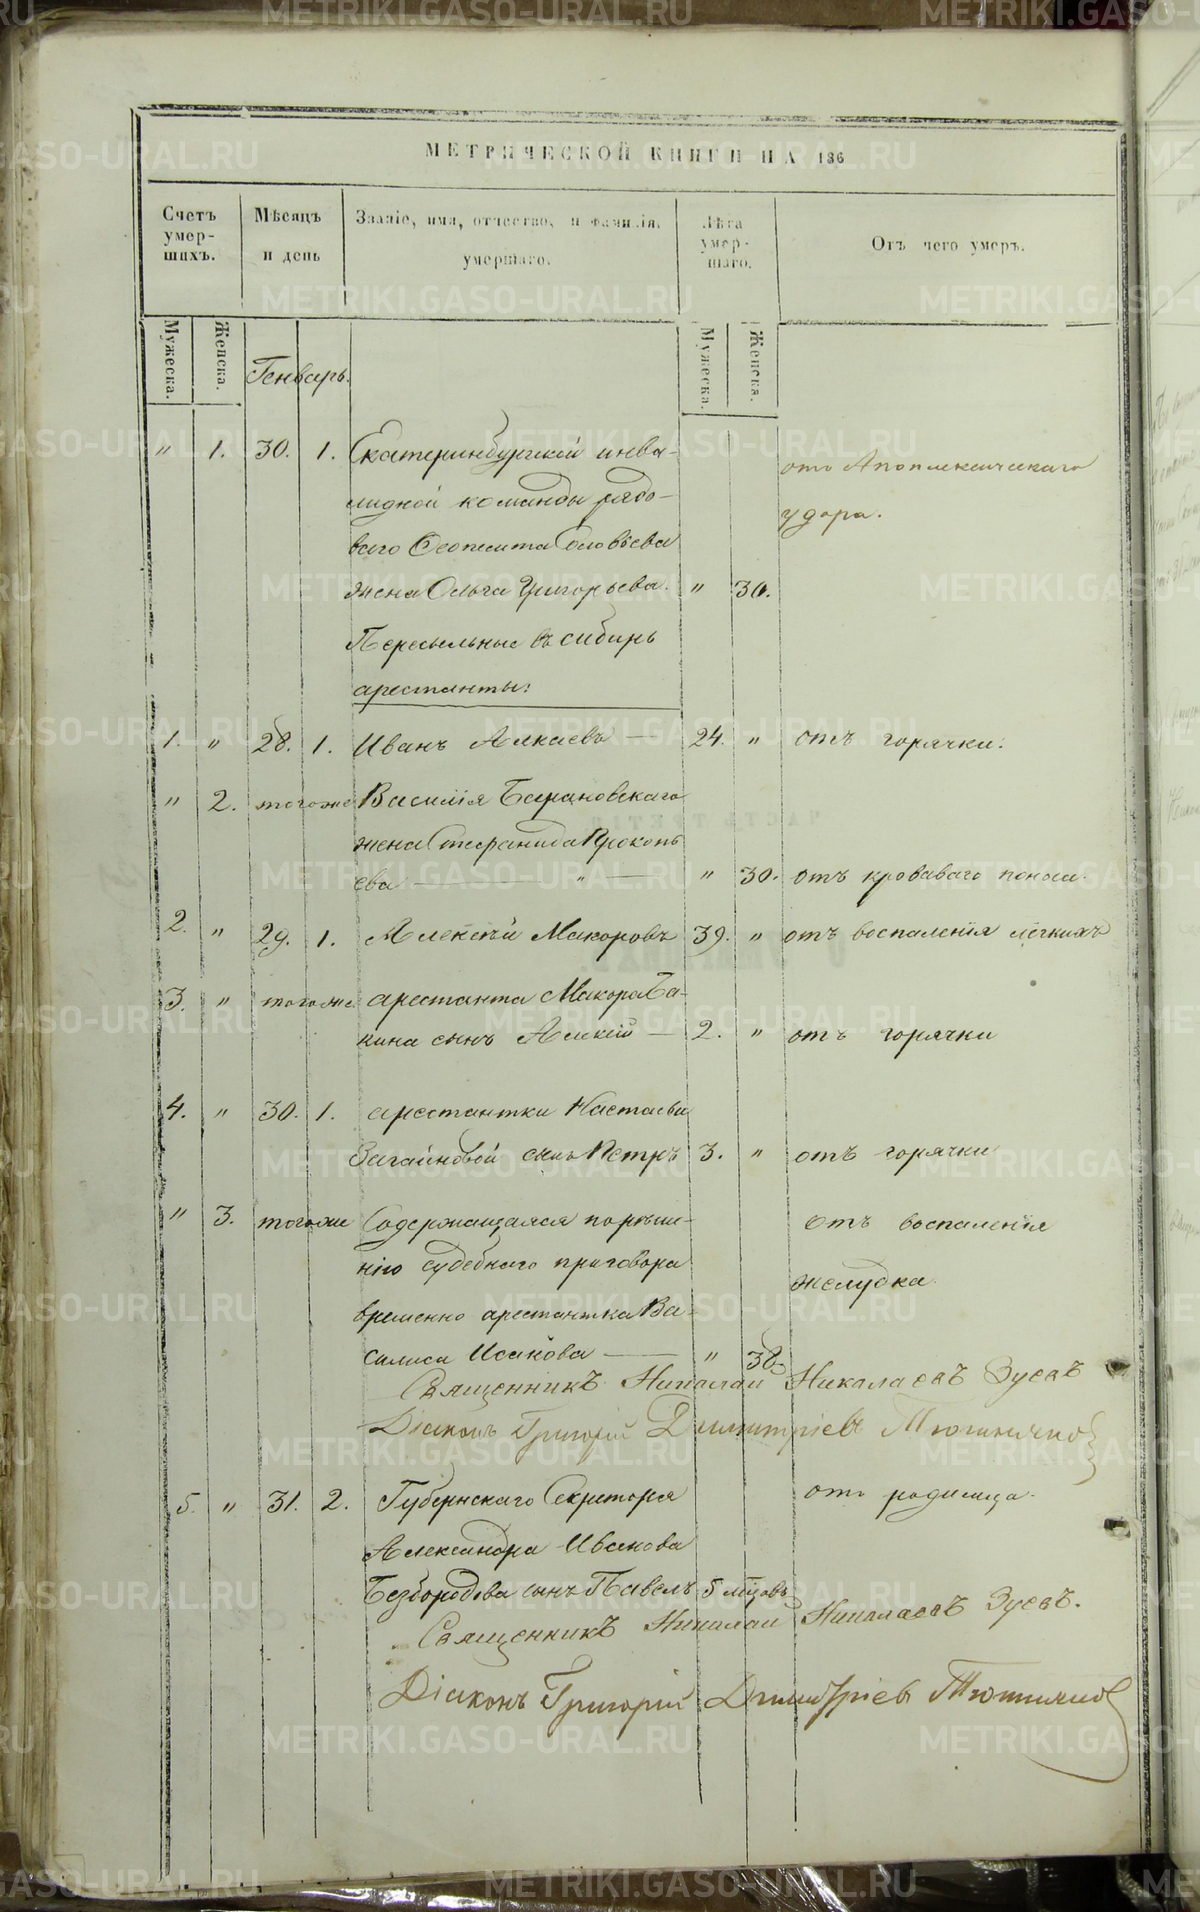 МЕТРИЧЕСКОЙ КНИГИ НА 186
Счетъ умер- шихъ.
Мѣсяцъ и день
Званіе, имя, отчество, и фамилія. умершаго.
Лѣта умер- шаго.
Отъ чего умеръ.
Мужеска. Женска.
Мужеска. Женска.
Генварь.
" 1. 30. 1. Екатеринбургской инва-
лидной команды рядо-
отъ Апоплексическаго
удара.
ваго Ѳеопемта Соловьева
жена Ольга Григорьева. " 30.
Пересыльные въ сибирь
арестанты:
1. " 28. 1. Иванъ Алкаевъ — 24. " отъ горячки.
" 2. тогоже Василія Барановскаго
жена Стефанида Прокопь
ева — " — " 30. отъ кроваваго поноса.
2. " 29. 1. Алексѣй Макоровъ 39. " отъ воспаленія легкихъ
3. " тогоже арестанта Макора Ба-
кина сынъ Алексѣй — 2. " отъ горячки
4. " 30. 1. арестантки Настасьи
Загайновой сынъ Петръ 3. " отъ горячки
" 3. тогоже Содержащаяся порѣше-
нію судебнаго приговора
отъ воспаленія
желудка.
временно арестантка Ва-
силиса Исакова — " 38.
Священникъ Николай Николаевъ Зуевъ
Діаконъ Григорій Димитріевъ
5. " 31. 2. Губернскаго Секретаря
отъ родимца.
Александра Иванова
Безбородова сынъ Павелъ 5 мѣсяцовъ
Священникъ Николай Николаевъ Зуевъ.
Діаконъ Григорій Димитріевъ
METRIKI.GASO-URAL.RU